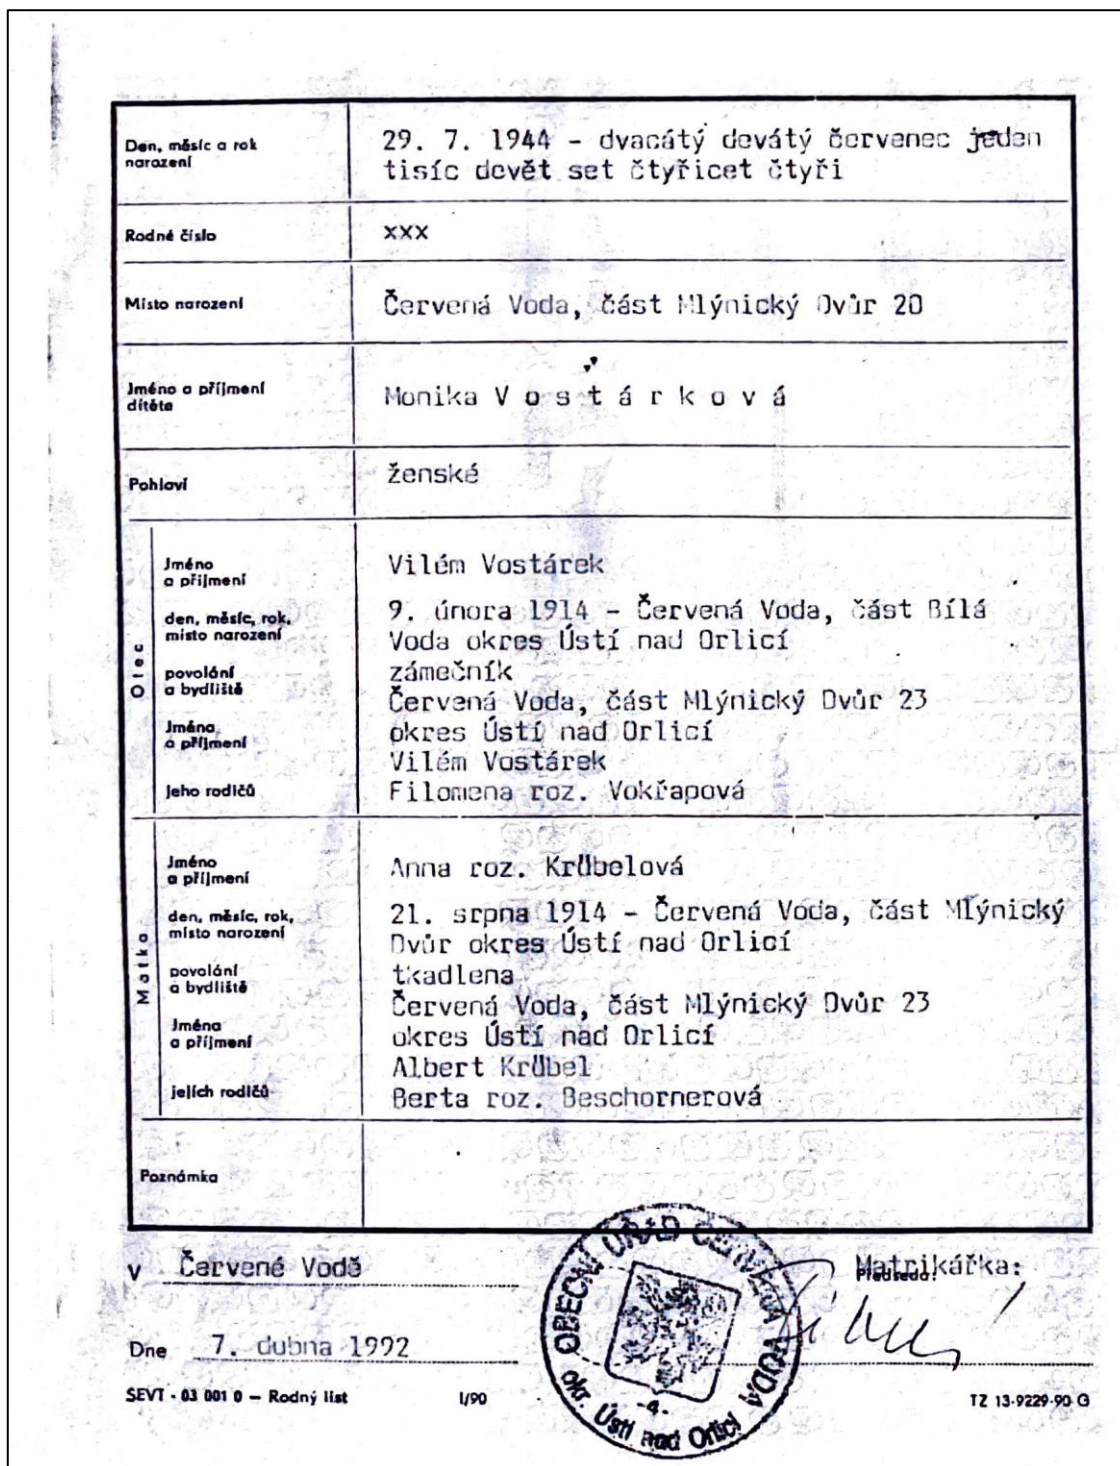 Den, měsíc a rok
narození
29. 7. 1944 - dvacátý devátý červenec jeden
tisíc devět set čtyřicet čtyři
Rodné číslo
xxx
Místo narození
Červená Voda, část Mlýnický Dvůr 20
Jméno a příjmení
dítěte
Monika V o s t á r k o v á
Pohlaví
ženské
Otec
Jméno
a příjmení
Vilém Vostárek
den, měsíc, rok,
místo narození
9. února 1914 - Červená Voda, část Bílá
Voda okres Ústí nad Orlicí
povolání
a bydliště
zámečník
Červená Voda, část Mlýnický Dvůr 23
okres Ústí nad Orlicí
Jména
a příjmení
jeho rodičů
Vilém Vostárek
Filomena roz. Vokřapová
Matka
Jméno
a příjmení
Anna roz. Krübelová
den, měsíc, rok,
místo narození
21. srpna 1914 - Červená Voda, část Mlýnický
Dvůr okres Ústí nad Orlicí
povolání
a bydliště
tkadlena
Červená Voda, část Mlýnický Dvůr 23
okres Ústí nad Orlicí
Jména
a příjmení
jejích rodičů
Albert Krübel
Berta roz. Beschornerová
Poznámka
v Červené Vodě
Matrikářka:
Předseda:
Dne 7. dubna 1992
OBECNÍ ÚŘAD ČERVENÁ VODA
okr. Ústí nad Orlicí
-4-
SEVT - 03 001 0 — Rodný list
I/90
TZ 13-9229-90 G